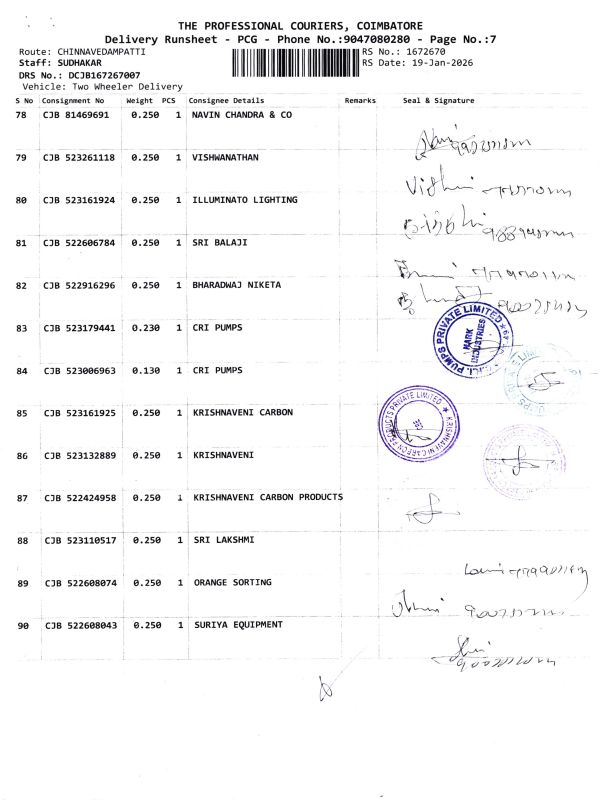 THE PROFESSIONAL COURIERS, COIMBATORE
Delivery Runsheet - PCG - Phone No.:9047080280 - Page No.:7
Route: CHINNAVEDAMPATTI RS No.: 1672670
Staff: SUDHAKAR RS Date: 19-Jan-2026
DRS No.: DCJB167267007
Vehicle: Two Wheeler Delivery
S No Consignment No Weight PCS Consignee Details Remarks Seal & Signature
78 CJB 81469691 0.250 1 NAVIN CHANDRA & CO
79 CJB 523261118 0.250 1 VISHWANATHAN
80 CJB 523161924 0.250 1 ILLUMINATO LIGHTING
81 CJB 522606784 0.250 1 SRI BALAJI
82 CJB 522916296 0.250 1 BHARADWAJ NIKETA
83 CJB 523179441 0.230 1 CRI PUMPS
PUMPS PRIVATE LIMITED
MARK INDUSTRIES
84 CJB 523006963 0.130 1 CRI PUMPS
85 CJB 523161925 0.250 1 KRISHNAVENI CARBON
KRISHNAVENI CARBON PRODUCTS PRIVATE LIMITED
86 CJB 523132889 0.250 1 KRISHNAVENI
87 CJB 522424958 0.250 1 KRISHNAVENI CARBON PRODUCTS
88 CJB 523110517 0.250 1 SRI LAKSHMI
89 CJB 522608074 0.250 1 ORANGE SORTING
90 CJB 522608043 0.250 1 SURIYA EQUIPMENT